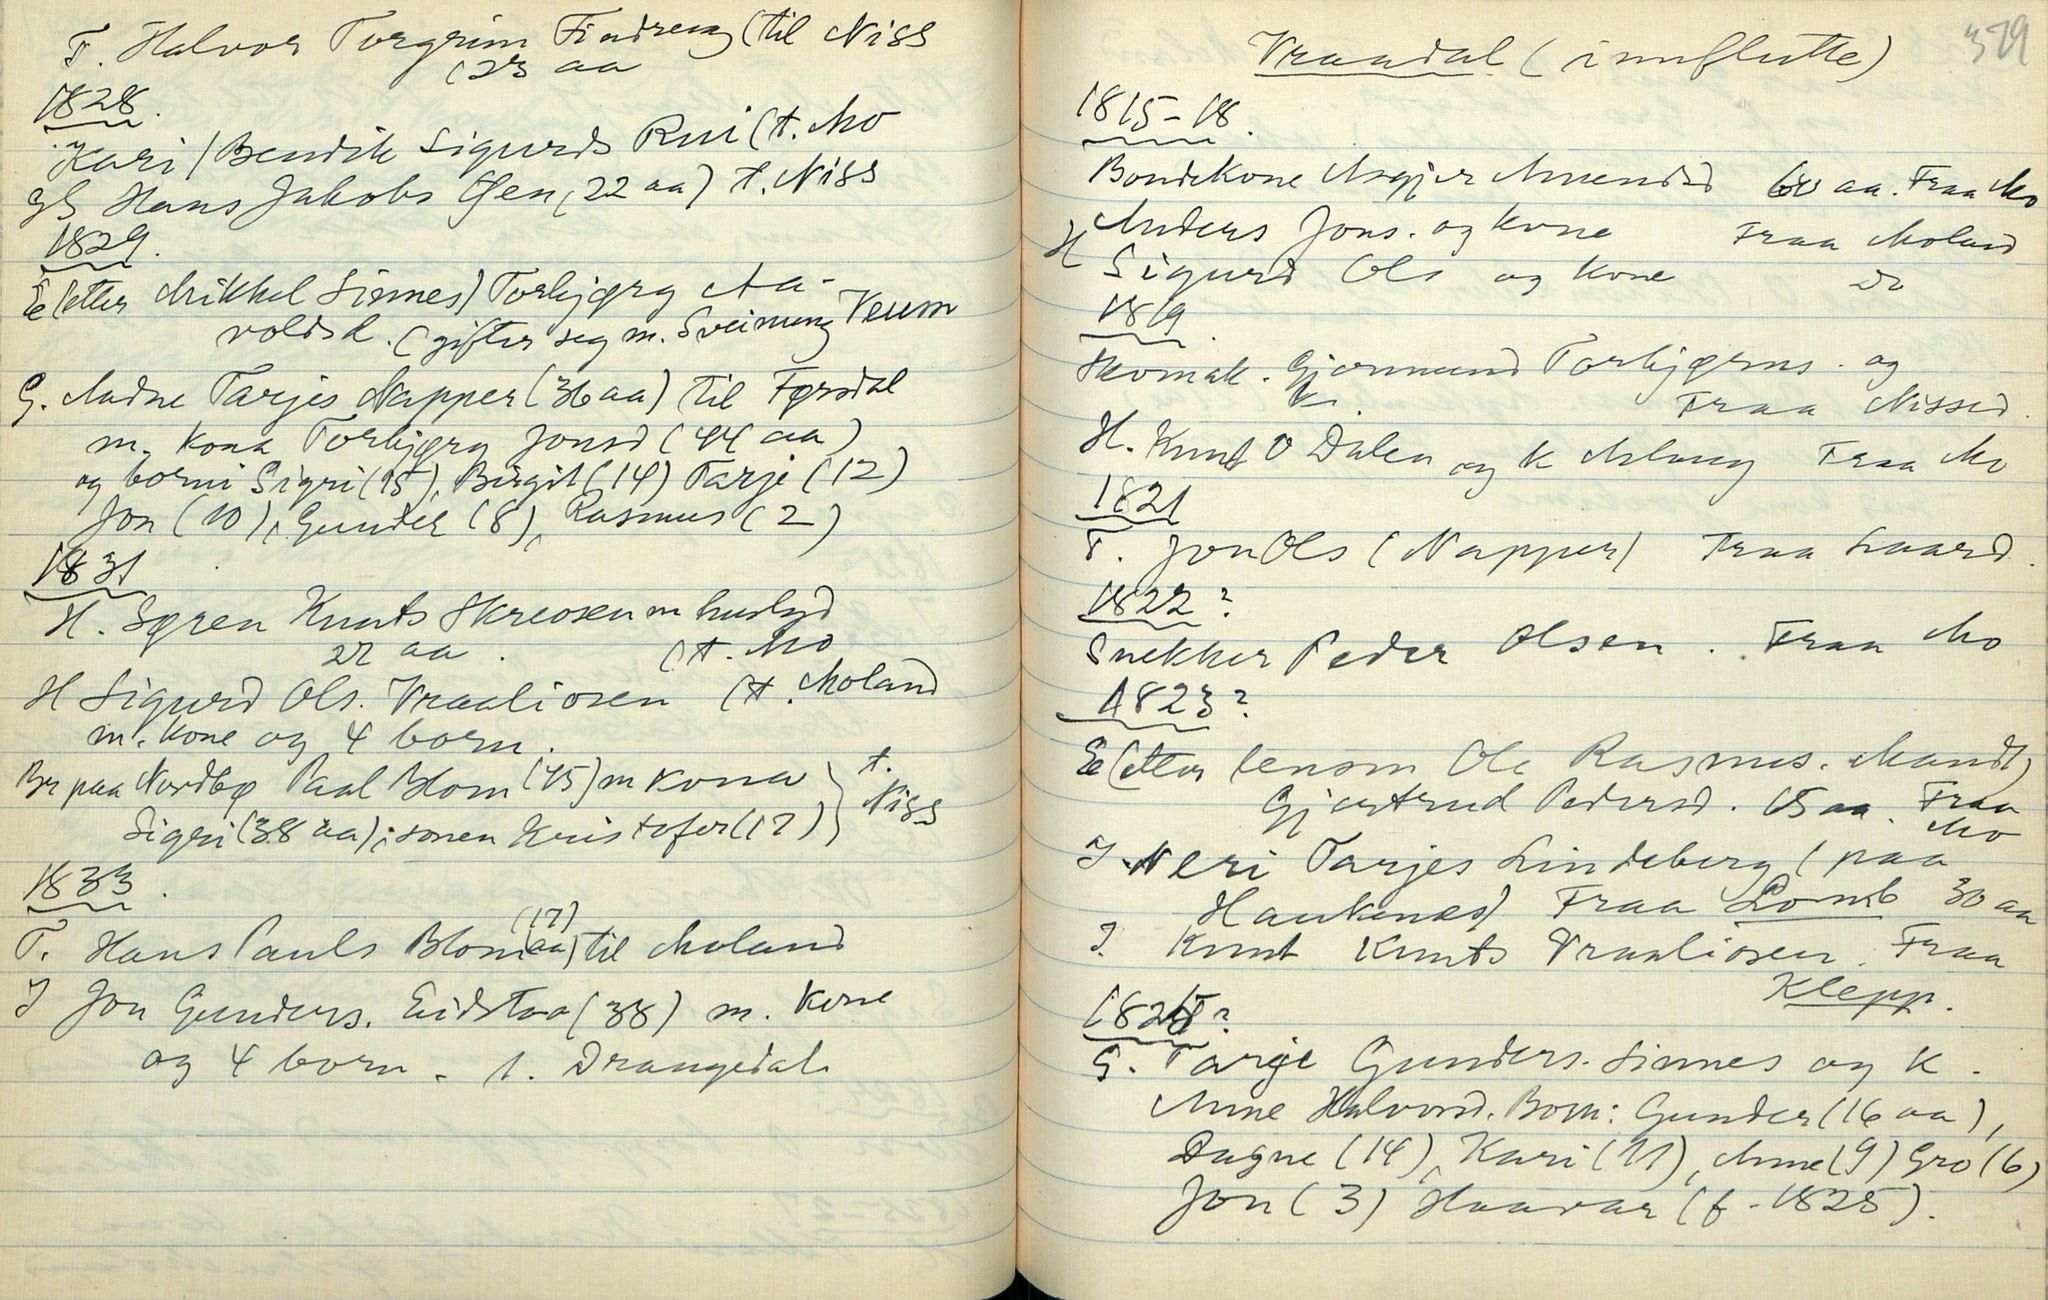 T. Halvor Torgrim Findreng (til Niss
(23 aa
1828.
Kari / Bendik Sigurds Rui (t. Mo
gS Hans Jakobs Øen (22 aa) t. Niss
1829.
Ee (etter Mikkel Sinnes) Torbjørg Aa-
voldsd. (gifter seg m. Sveinung Veum
G. Madne Tarjes Napper (36 aa) til Førsdal
m. kona Torbjørg Jonsd (44 aa)
og borni Sigri (15), Birgit (14) Tarje (12)
Jon (10), Gunder (8), Rasmus (2)
1831
H. Søren Knuts Skreosen m huslyd
22 aa. (t. Mo
H Sigurd Ols. Vraaliosen (t. Moland
m. kone og 4 born.
Br paa Nordbø Paal Blom (45) m kona } t.
Sigri (38 aa), sonen Kristofer (17) Niss
1833.
(17)
T. Hans Pauls Blom (aa) til Moland
J Jon Gunders. Eidstaa (38) m. kone
og 4 born. t. Drangedal.
379
Vraadal (innflutte)
1815-18.
Bondekone Asgjer Amundsd 60 aa. Fraa Mo
Anders Jons. og kone Fraa Moland
H Sigurd Ols og kone do
1819.
Skomak. Gjermund Torbjørns. og
k. Fraa Nissed.
H. Knut O Dalen og k Aslaug Fraa Mo
1821
T. Jon Ols (Napper) Fraa Laard.
1822?
Snekker Peder Olsen. Fraa Mo
1823?
Ee (etter lensm Ole Rasmus. Mandt)
Gjertrud Pedersd. 65 aa. Fraa
Mo
J. Neri Tarjes Lindeberg (paa
Haukenæs) Fraa Lomb 30 aa
J. Knut Knuts Vraaliosen. Fraa
Klepp.
1825?
G. Tarje Gunders. Sinnes og k.
Anne Halvorsd. Born: Gunder (16 aa),
Dagne (14), Kari (11), Anne (9) Gro (6)
Jon (3) Haavar (f. 1825).